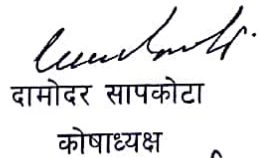 दामोदर सापकोटा
कोषाध्यक्ष